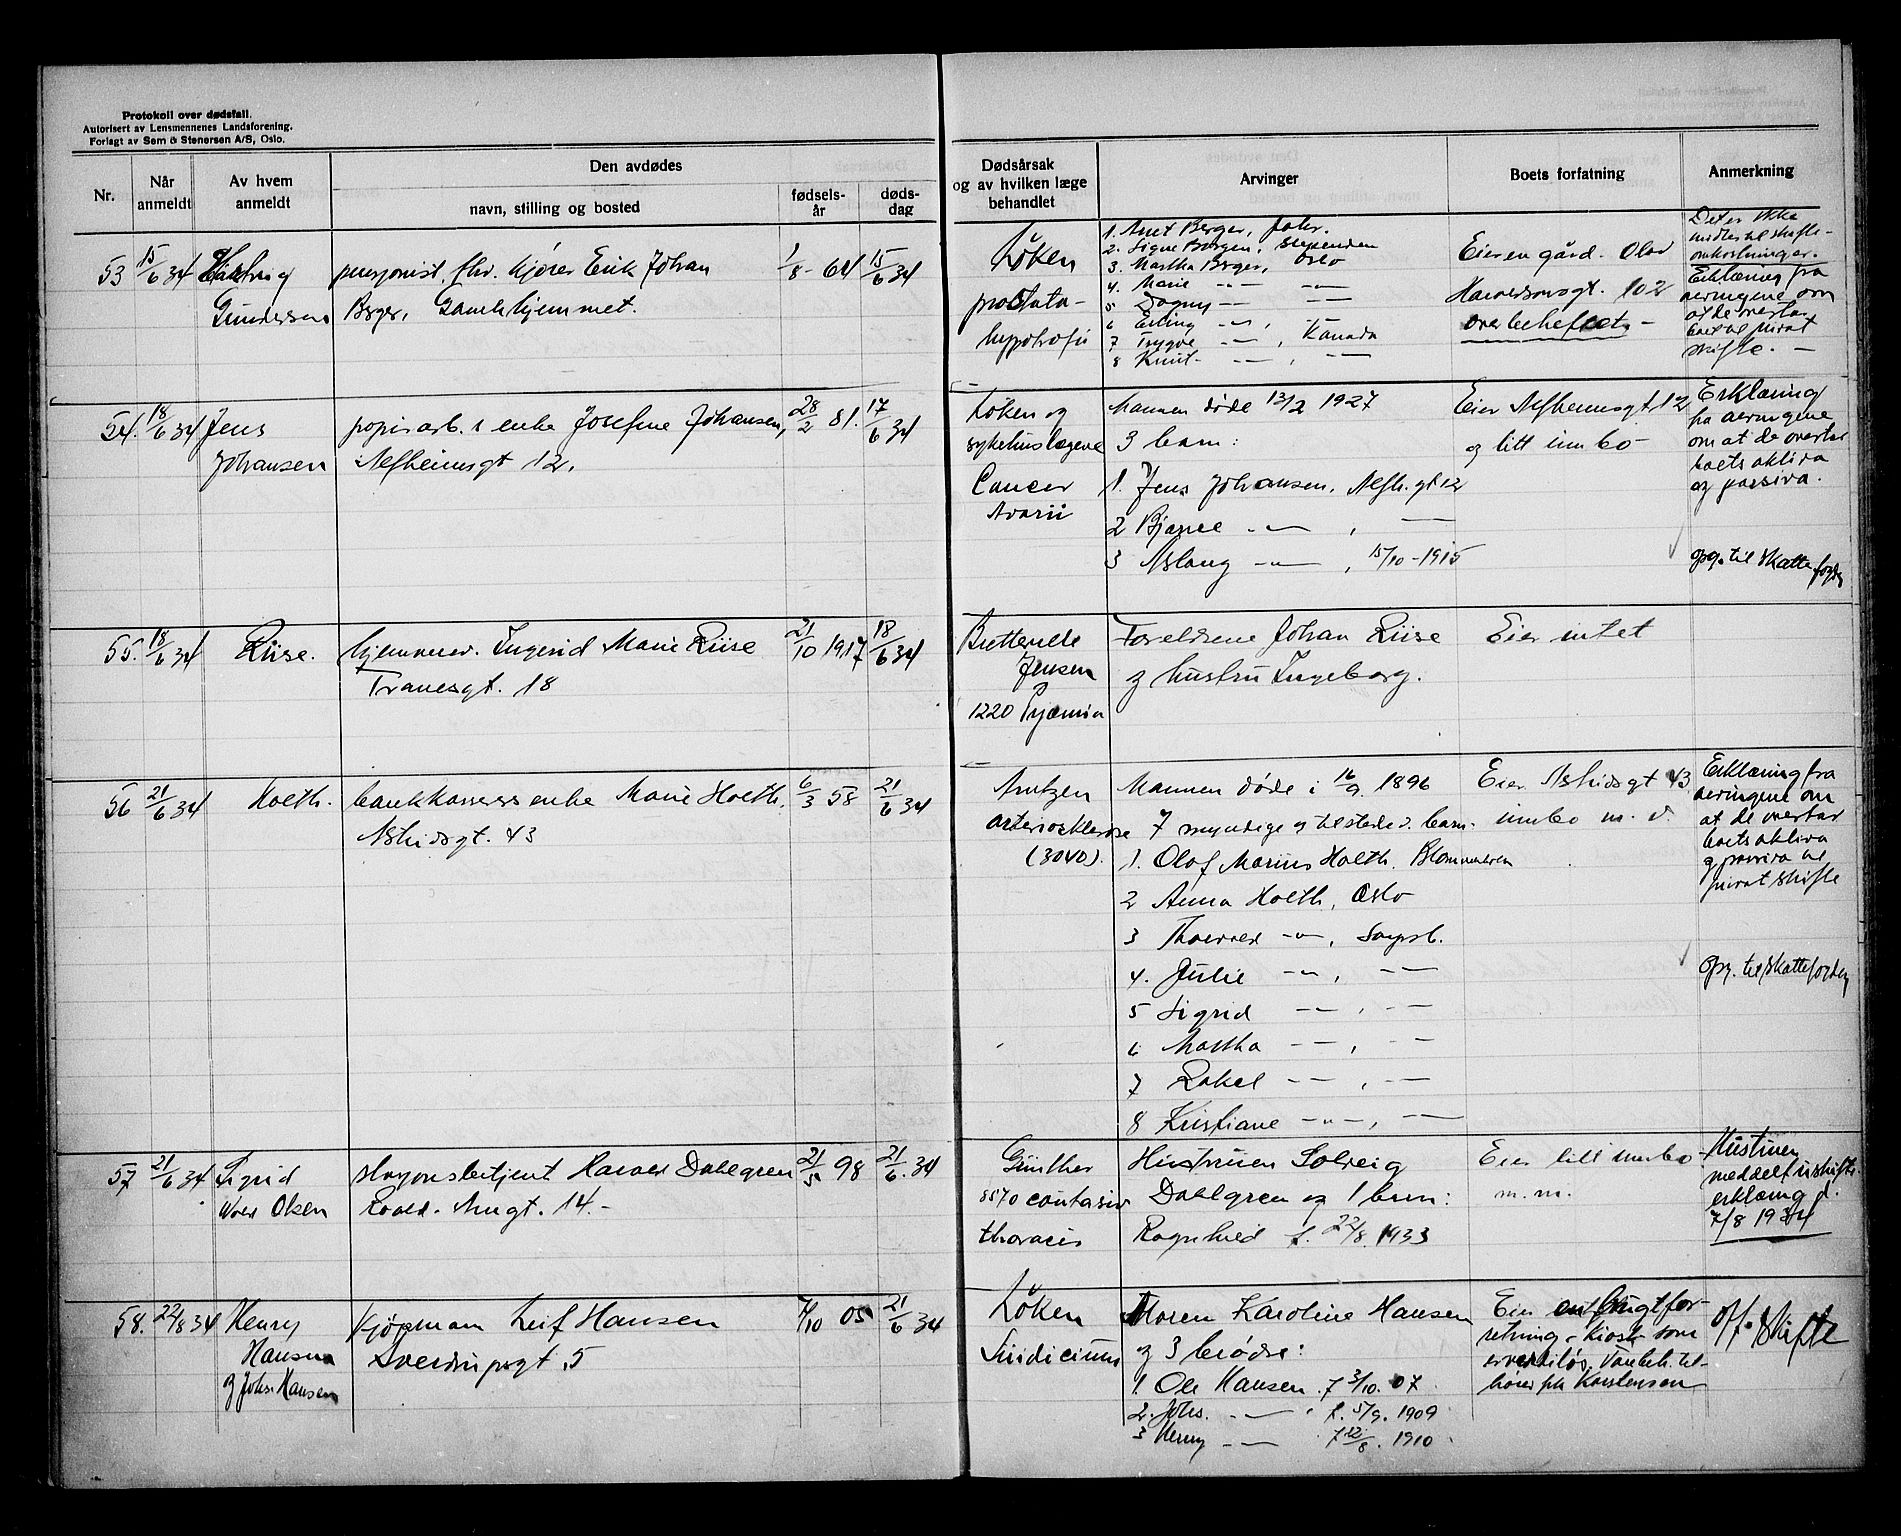 Protokoll over dødsfall.
Autorisert av Lensmennenes Landsforening.
Forlagt av Sem & Stenersen A/S, Oslo.
Nr.
Når anmeldt
Av hvem anmeldt
Den avdødes
navn, stilling og bosted
fødselsår
dødsdag
Dødsårsak og av hvilken læge behandlet
Arvinger
Boets forfatning
Anmerkning
53 15/6 34
Gundersen
pensjonist, fhv. kjører Erik Johan
Berger, Gamlehjemmet.
1/8 - 64 15/6 34
Löken
prostata-
hypotrofi
1. Anet Berger,
2. Signe Borgen, Slependen
3. Martha Berger, Oslo
4. Marie -"- -"-
5 Dagny -"- -"-
6 Erling -"-, -"-
7 Trygve -"-, Kanada
8 Knut -"-, -"-
Eier en gård. Olav
Haraldsonsgt. 102
overbeheftet -
Det er ikke
midler til skifte-
omkostninger.
Erklæring fra
arvingene om
at de overtar
boet til privat
skifte. -
54. 18/6 34 Jens
Johansen
papirarb.s enke Josefine Johansen,
Alfheimsgt 12.
28/2 81. 17/6 34
Löken og
sykehuslægene
Cancer
Ovarii
Mannen døde 13/2 1927
3 barn:
1. Jens Johansen, Alfh.gt 12
2 Bjarne -"-, -"-
3 Aslaug -"-, 15/10 - 1915
Eier Alfheimsgt. 12
og litt innbo -
Erklæring
fra arvingene
om at de overtar
boets aktiva
og passiva.
opg. til skattefogden
55. 18/6 34 Riise.
hjemmev. Ingerid Marie Riise
Tranesgt. 18
21/10 1917 18/6 34
Jensen
1220 Pyæmia
Foreldrene Johan Riise
og hustru Ingeborg.
Eier intet
56 21/6 34 Holth.
bankkasserers enke Marie Holth.
Astridsgt. 43
6/3 58 21/6 34
Arntzen
arteriosklerose
(3040).
Mannen døde i 16/9. 1896
7 myndige og tilstedev. barn.
1. Olaf Marius Holth.
2 Anna Holth, Oslo
3 Thorvald -"-, Sarpsb.
4. Julie -"-, -"-
5 Sigrid -"-, -"-
6 Martha -"-, -"-
7 Rakel -"-, -"-
8 Kristiane -"-, -"-
Eier Astridsgt 43,
innbo m. v.
Erklæring fra
arvingene om
at de overtar
boets aktiva
og passiva til
privat skifte
opg. til skattefogden
57 21/6 34 Sigrid
Olsen
Harald Dahlgren
Roald Amgt. 14.-
21/5 98 21/6. 34
Günther
8570 contusio
thoracis
Hustruen Solveig
Dahlgren og 1 barn:
Ragnhild f. 22/8. 1933
Eier litt innbo
m.m.
Hustruen
meddelt uskifte-
erklæring d.
7/8 1934
58. 22/8 34 Henry
Hansen
og Johs. Hansen
Kjøpmann Leif Hansen
Sverdrupsgt. 5
7/10 05 21/6 34
Löken
Suicidium
Moren Karoline Hansen
og 3 brødre:
1. Ole Hansen. f 3/10. 07
2. Johs. -"- f. 5/9. 1909
3 Henry -"- f 12/8. 1910
Eier en frugtfor-
retning i kiosk som
er verdiløs. Varebeh. til-
hører frk Karstensen
off. skifte